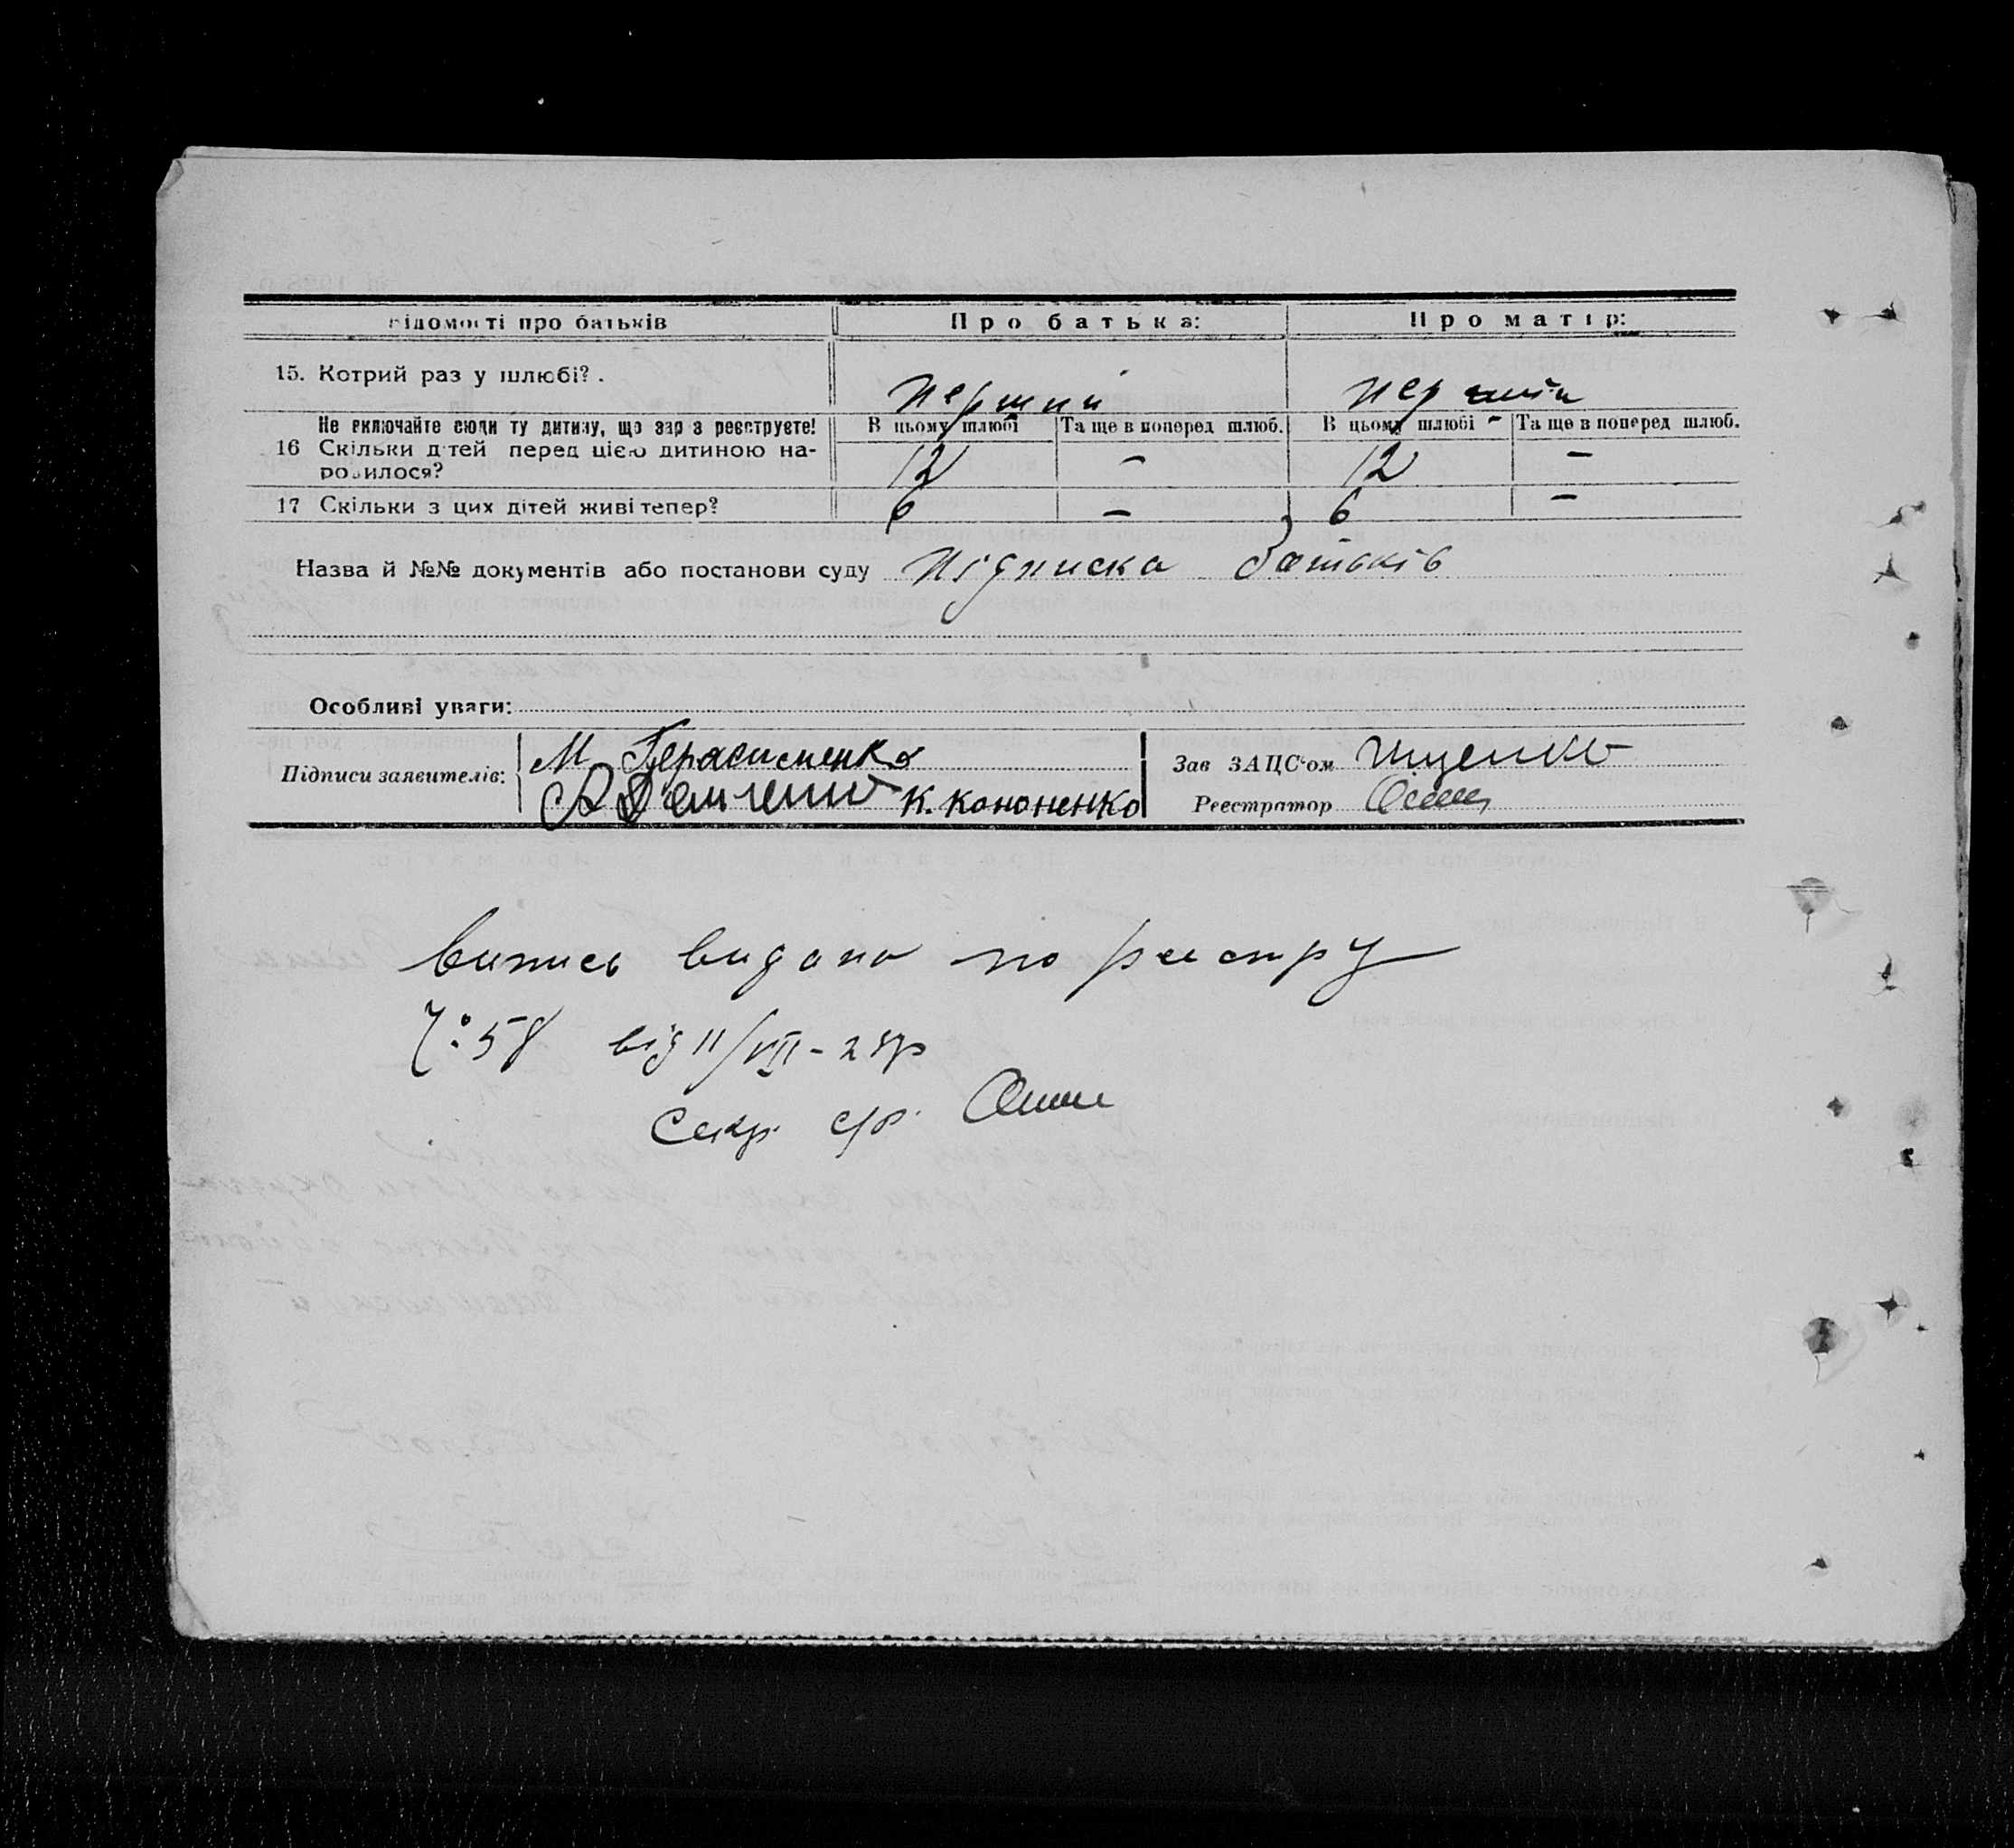 Відомості про батьків Про батька: Про матір:
15. Котрий раз у шлюбі? . перший перший
Не включайте сюди ту дитину, що зараз реєструєте! В цьому шлюбі Та ще в поперед шлюб. В цьому шлюбі Та ще в поперед шлюб.
16 Скільки дітей перед цією дитиною на- 12 - 12 -
родилося?
17 Скільки з цих дітей живі тепер? 6 - 6 -
Назва й №№ документів або постанови суду підписка батьків
Особливі уваги:
Підписи заявителів: М Герасименко Зав ЗАЦС'ом Іщенко
К. Кононенко Реєстратор
Випись видана по реєстру
58 від 11/VII-28р
Секр. с/р.